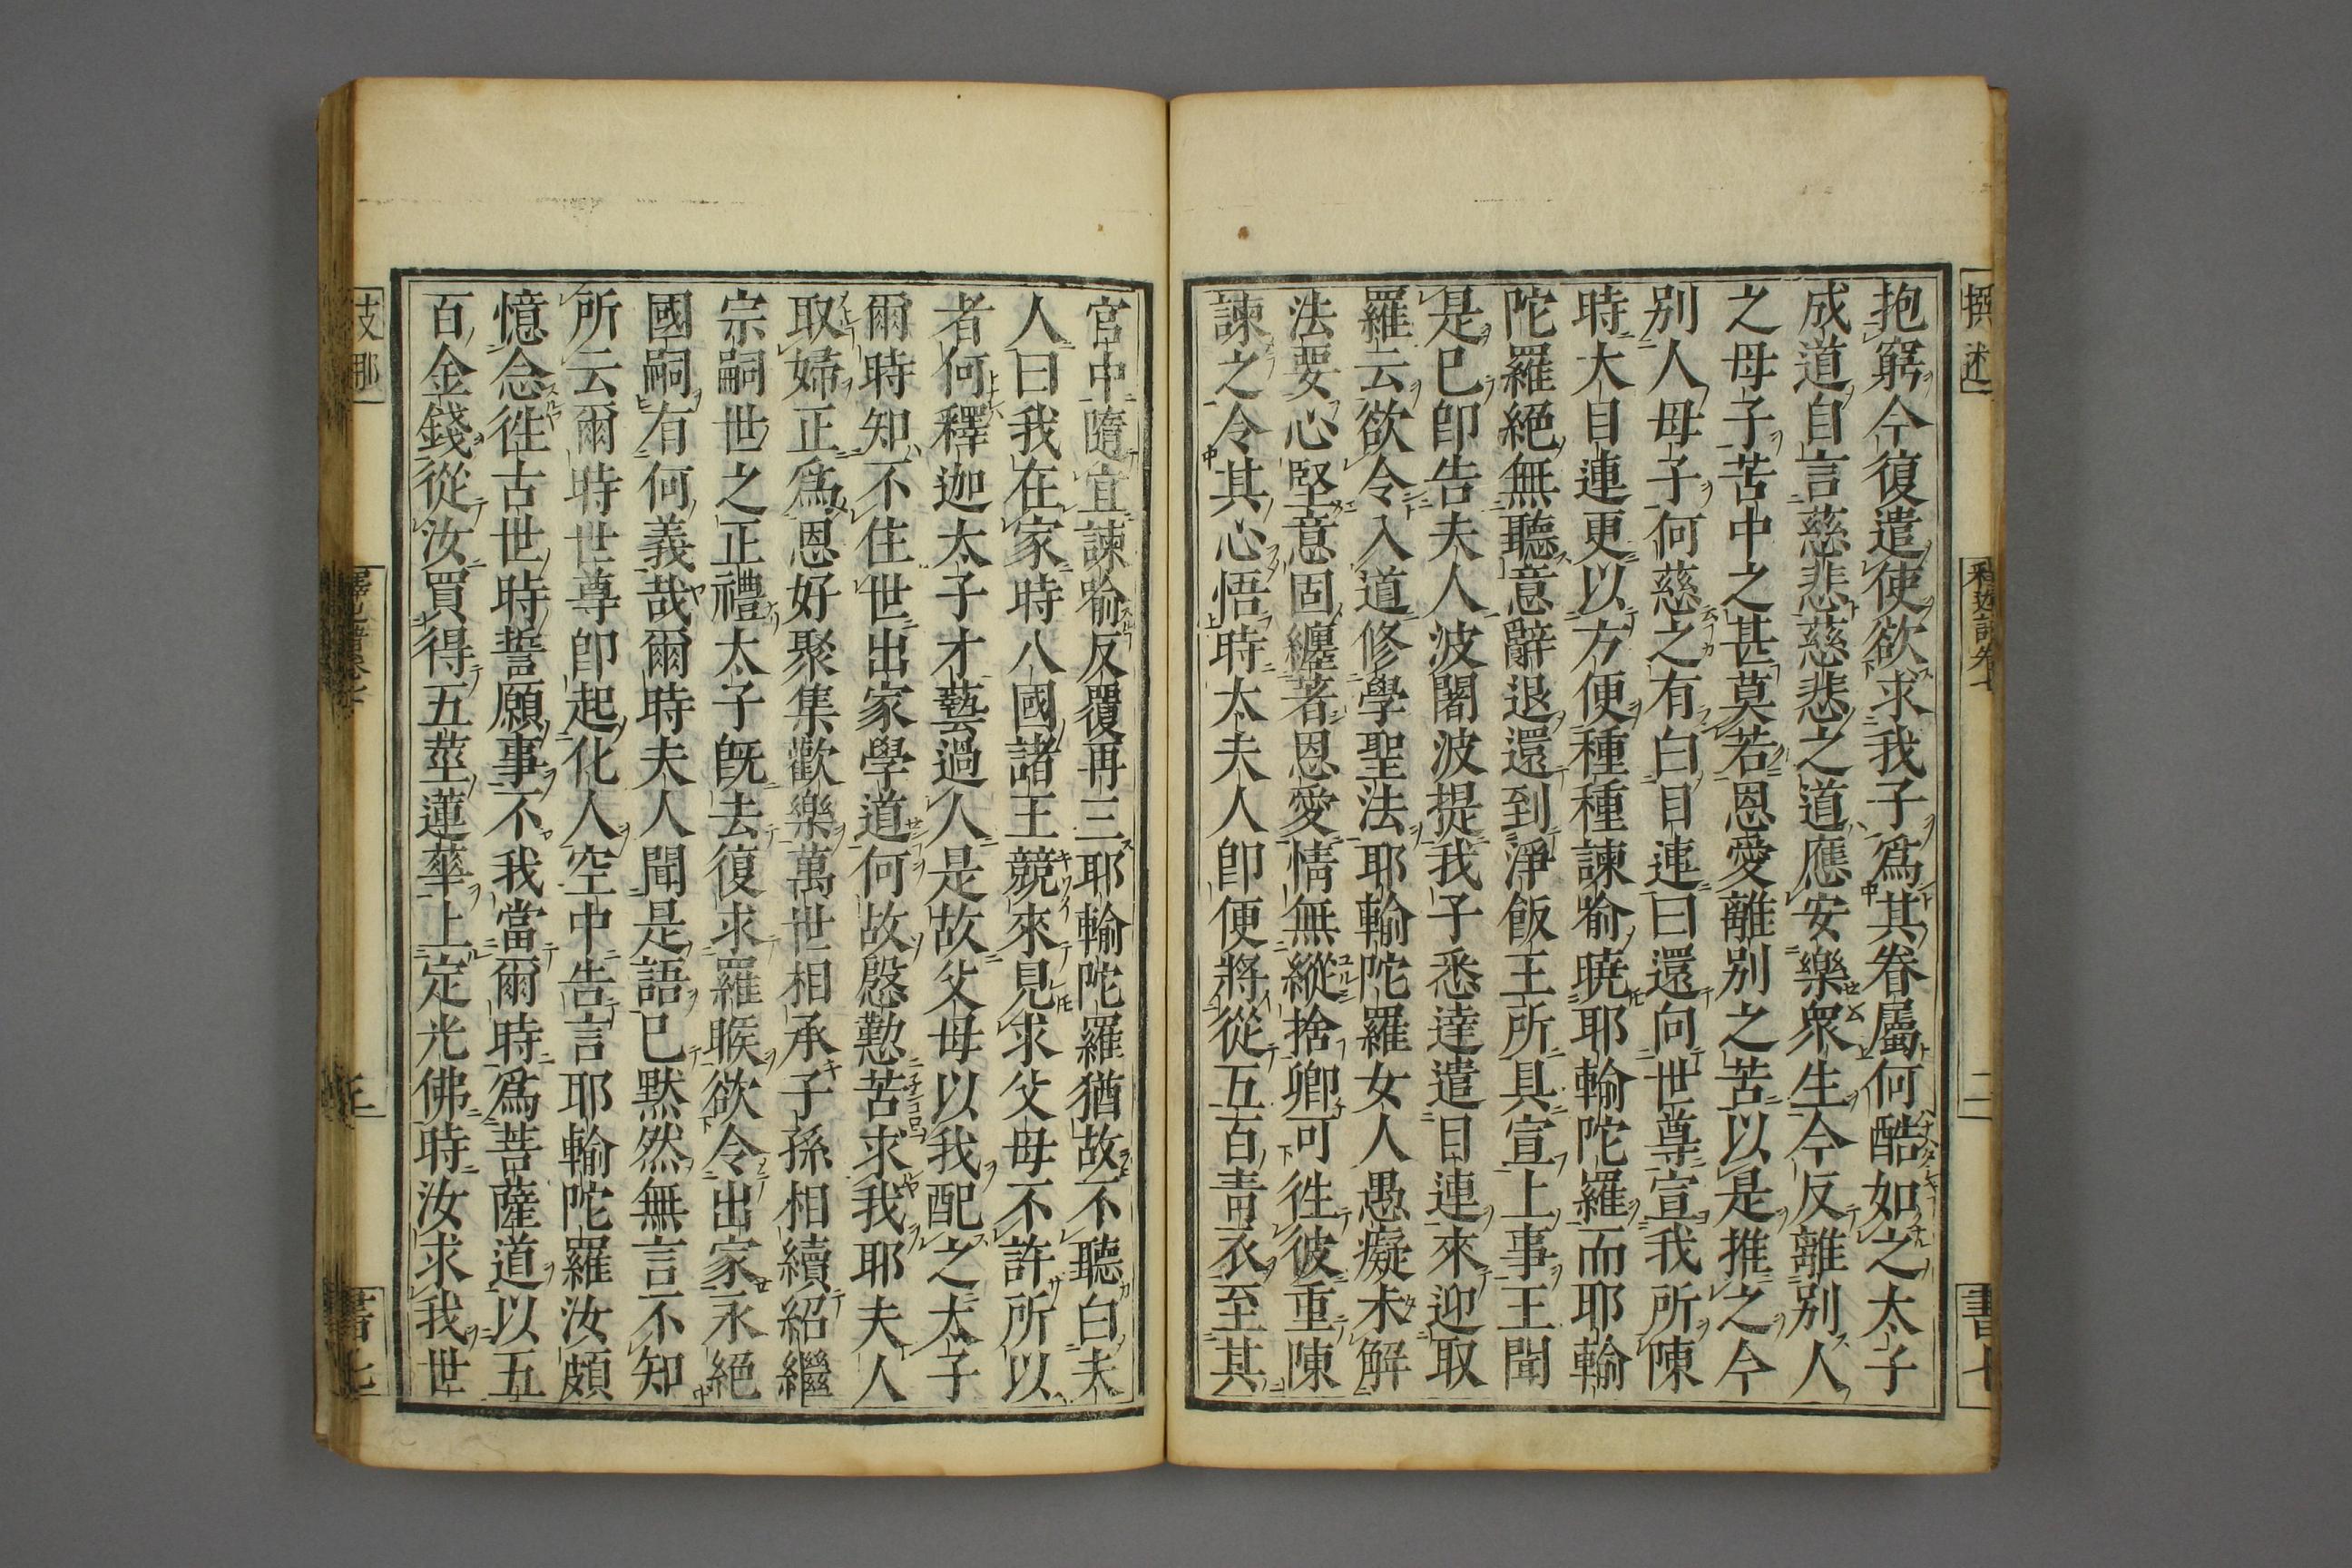 抱窮今復遣使欲求我子爲其眷屬何酷如之太子
成道自言慈悲慈悲之道應安樂衆生今反離別人
之母子苦中之甚莫若恩愛離別之苦以是推之今
別人母子何慈之有白目連曰還向世尊宣我所陳
時大目連更以方便種種諫喻曉耶輸陀羅而耶輸
陀羅絕無聽意辭退還到淨飯王所具宣上事王聞
是已卽告夫人波闍波提我子悉達遣目連來迎取
羅云欲令入道修學聖法耶輸陀羅女人愚癡未解
法要心堅意固纏著恩愛情無縱捨卿可徃彼重陳
諫之令其心悟時太夫人卽便將從五百青衣至其
宮中隨宜諫喻反覆再三耶輸陀羅猶故不聽白夫
人曰我在家時八國諸王競來見求父母不許所以
者何釋迦太子才藝過人是故父母以我配之太子
爾時知不住世出家學道何故慇懃苦求我耶夫人
取婦正爲恩好聚集歡樂萬世相承子孫相續紹繼
宗嗣世之正禮太子旣去復求羅睺欲令出家永絕
國嗣有何義哉爾時夫人聞是語已默然無言不知
所云爾時世尊卽起化人空中告言耶輸陀羅汝頗
憶念徃古世時誓願事不我當爾時爲菩薩道以五
百金錢從汝買得五莖蓮華上定光佛時汝求我世